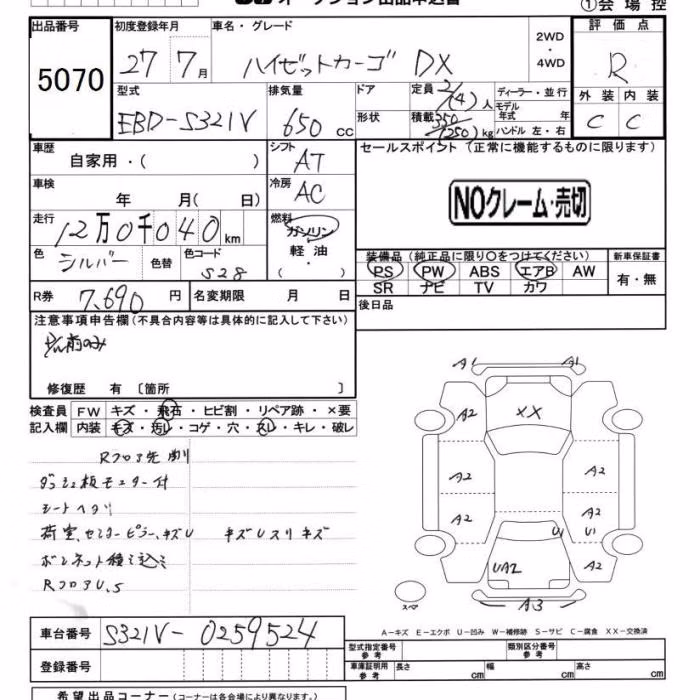 オークション出品申込書
①会場控
出品番号 初度登録年月 車名・グレード 評価点
5070 27 7月 ハイゼットカーゴ DX 2WD・4WD R
型式 排気量 ドア 定員 2/(4)人 ディーラー・並行 外装 内装
EBD-S321V 650 CC 形状 積載 350/(250)kg モデル年式 年 ハンドル 左・右 C C
車歴 自家用・( ) シフト AT セールスポイント (正常に機能するものに限ります)
車検 年 月( 日) 冷房 AC NOクレーム・売切
走行 12万0千040km 燃料 ガソリン 軽油・( )
色 シルバー 色替 色コード S28
装備品(純正品に限り○をつけてください) 新車保証書
PS PW ABS エアB AW 有・無
SR ナビ TV カワ
R券 7,690円 名変期限 月 日 後日品
注意事項申告欄(不具合内容等は具体的に記入して下さい)
修復歴 有 〔箇所 〕
検査員 FW キズ・飛石・ヒビ割・リペア跡・×要
記入欄 内装 キズ・汚レ・コゲ・穴・スレ・キレ・破レ
Rフロア先
シートヘタリ
荷室、センターピラー、キズU キズUスリキズ
RフロアU,S
A1 A1
A2 XX A2
A2 A2
A2 A2
U1 U1
UA2 A2
スペア A3
A-キズ E-エクボ U-凹み W-補修跡 S-サビ C-腐食 XX-交換済
車台番号 S321V-0259524
型式指定番号 参考 類別区分番号 参考
登録番号 車庫証明用 参考 長さ cm 幅 cm 高さ cm
希望出品コーナー(コーナーは各会場により異なります。)